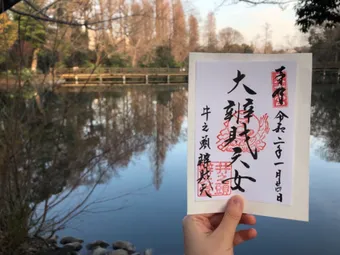 奉拝
令和二年一月四日
大辨財天女
井之頭辨財天